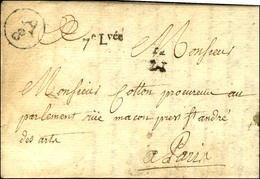 A
8
7e Lvée
Monsieur
Monsieur Cotton procureur au
parlement rüe macon pres st andré
des arts
a Paris